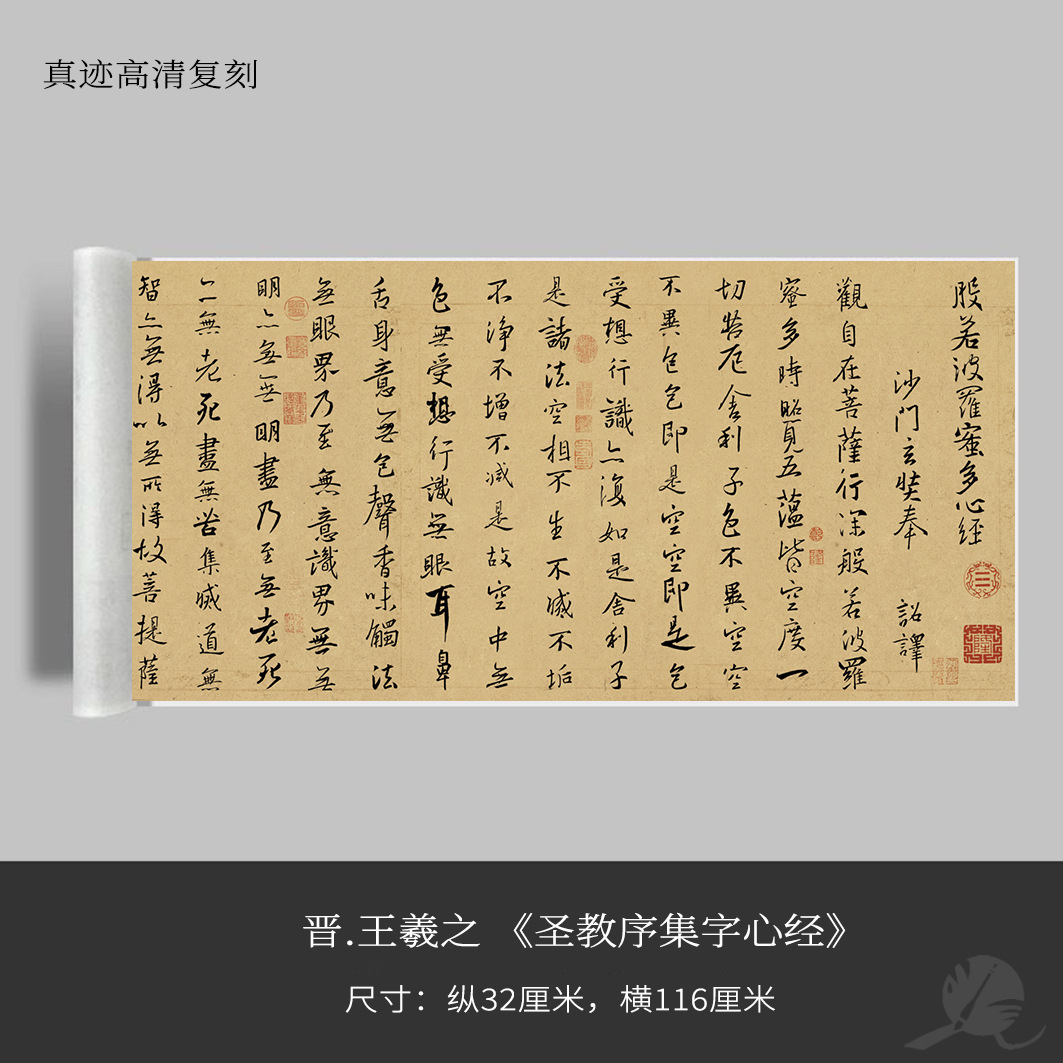 真迹高清复刻
般若波羅蜜多心經
沙門玄奘奉 詔譯
觀自在菩薩行深般若波羅
蜜多時照見五蘊皆空度一
切苦厄舍利子色不異空空
不異色色即是空空即是色
受想行識亦復如是舍利子
是諸法空相不生不滅不垢
不淨不增不減是故空中無
色無受想行識無眼耳鼻
舌身意無色聲香味觸法
無眼界乃至無意識界無無
明亦無無明盡乃至無老死
亦無老死盡無苦集滅道無
智亦無得以無所得故菩提薩
晋.王羲之 《圣教序集字心经》
尺寸：纵32厘米，横116厘米